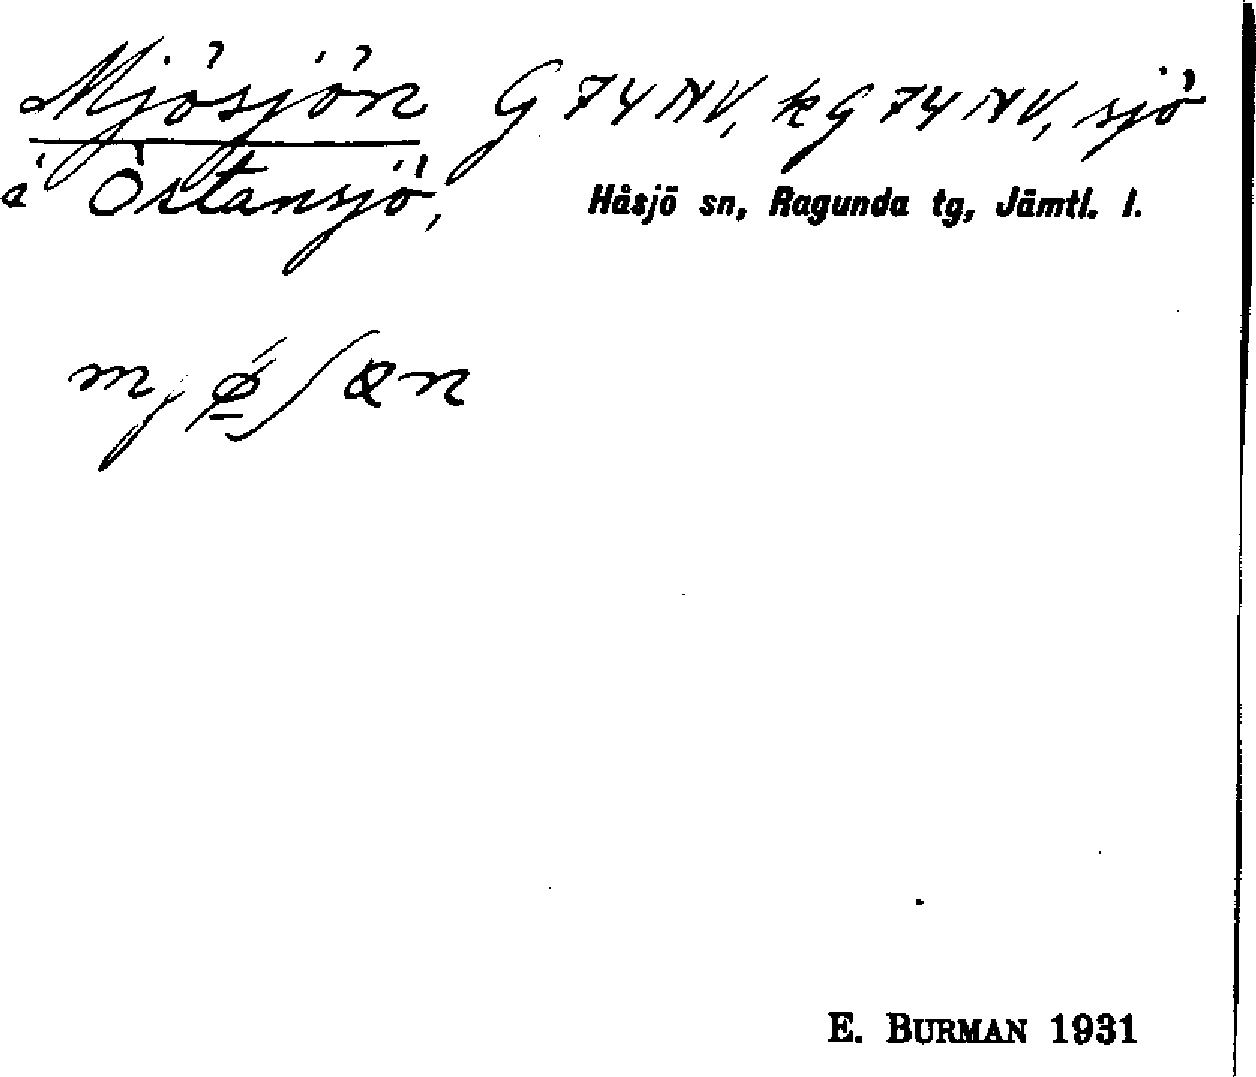 Mjösjön G 74 NV, kg 74 NV, sjö
å Östansjö, Håsjö sn, Ragunda tg, Jämtl. l.
E. BURMAN 1931